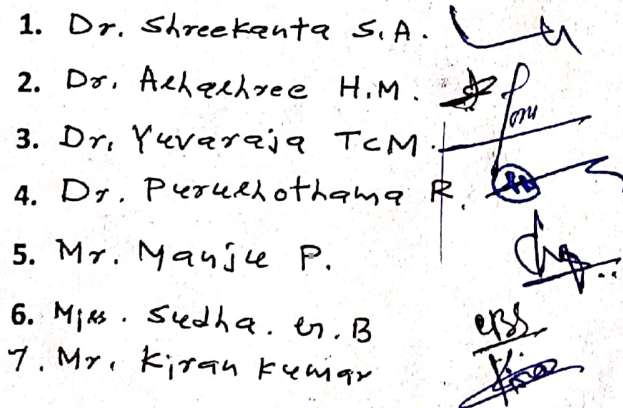 1. Dr. Shreekanta S.A.
2. Dr. Ashashree H.M.
3. Dr. Yuvaraja TCM.
4. Dr. Purushothama R.
5. Mr. Manju P.
6. Miss. Sudha. G. B
7. Mr. Kiran Kumar